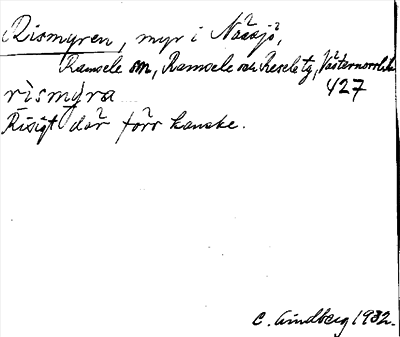 Rismyren, myr i Nässjö,
Ramsele sn, Ramsele och Resele tg, Västernorrlds
427
rismýra
Risigt där förr kanske.
C. Lindberg 1932.